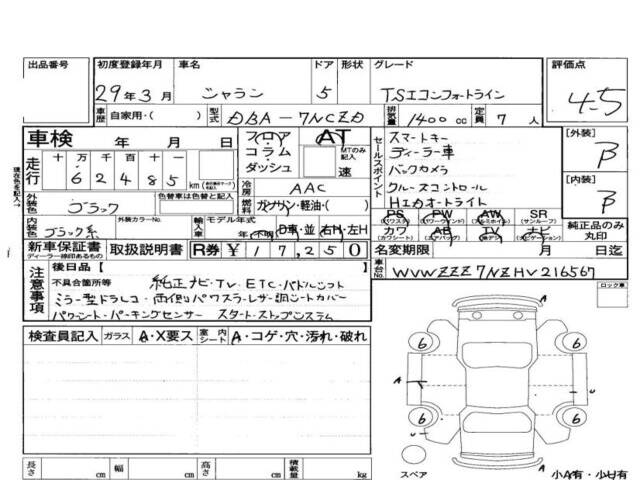 出品番号 初度登録年月 車名 ドア 形状 グレード 評価点
29年3月 シャラン 5 TSIコンフォートライン 4.5
車歴 自家用・( ) 型式 DBA-7NCZD 排気量 1400cc 定員 7人
車検 年 月 日 フロア コラム ダッシュ AT MTのみ記入 速
セールスポイント スマートキー
ディーラー車
バックカメラ
クルーズコントロール
HIDオートライト
[外装] B
[内装] B
走行 十万千百十 62485 km
現在色を記入→
冷房 AAC
外装色 ブラック 色替車は色替と記入 燃料 ガソリン・軽油・( )
PS PW AW SR
(パワステ) (パワーウインド) (アルミホイル) (サンルーフ)
カワ AB TV ナビ
(カワシート) (エアバッグ) (ナビゲーション)
純正品のみ丸印
内装色 ブラック系 外装カラーNo. 輸入車 モデル年式 年(不明) D車・並 右H・左H
新車保証書 ディーラー捺印あるもの 取扱説明書 R券 ¥17,250
名変期限 月 日迄
車台No. WVWZZZ7NZHV216567
注意事項 後日品【 】
不具合箇所等 純正ナビ・TV・ETC・パドルシフト
ミラー型ドラレコ・両側パワスラ・レザー調シートカバー
パワーシート・パーキングセンサー スタートストップシステム
ロック車
検査員記入 ガラス A・X要ス 室内シート A・コゲ・穴・汚れ・破れ
A
6 6
A U
6 6
A
スペア 小A有・小U有
長さ cm 幅 cm 高さ cm 積載量 kg